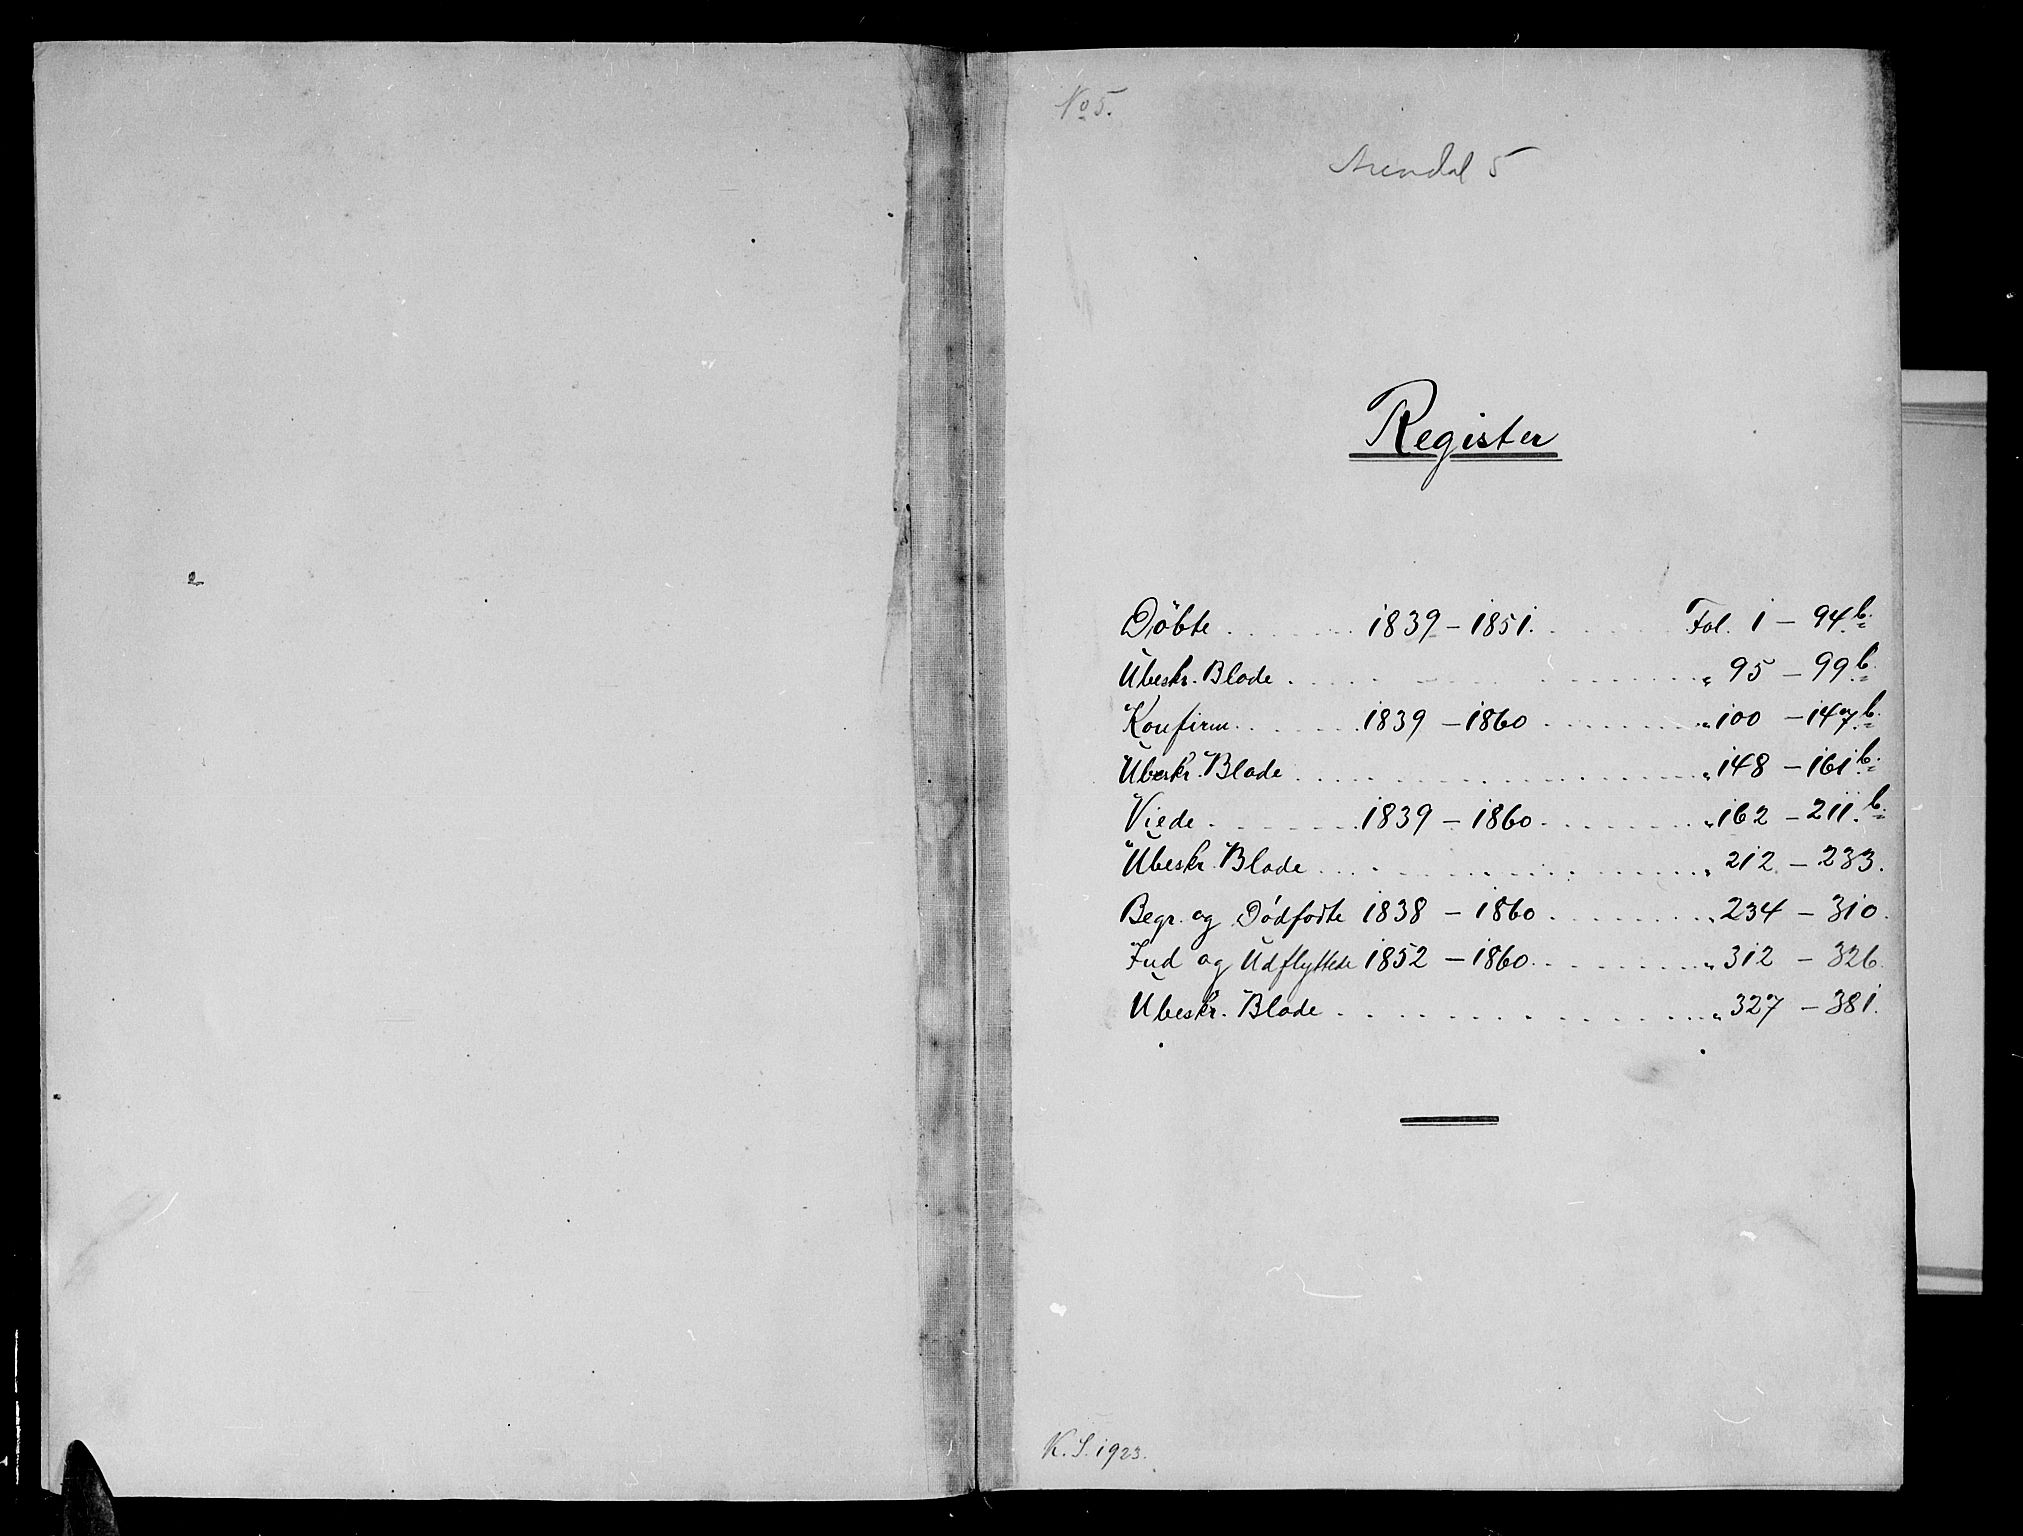 No 5.
Arendal 5
Register
Döbte 1839 - 1851. Fol. 1 - 94 b.
Ubeskr. Blade " 95 - 99 b.
Konfirm. 1839 - 1860 " 100 - 147 b.
Ubeskr. Blade " 148 - 161 b.
Viede 1839 - 1860 " 162 - 211. b.
Ubeskr. Blade " 212 - 233.
Begr. og Dödfödte 1838 - 1860 " 234 - 310.
Ind og Udflyttede 1852 - 1860 " 312 - 326.
Ubeskr. Blade " 327 - 381.
K. S. 1923.